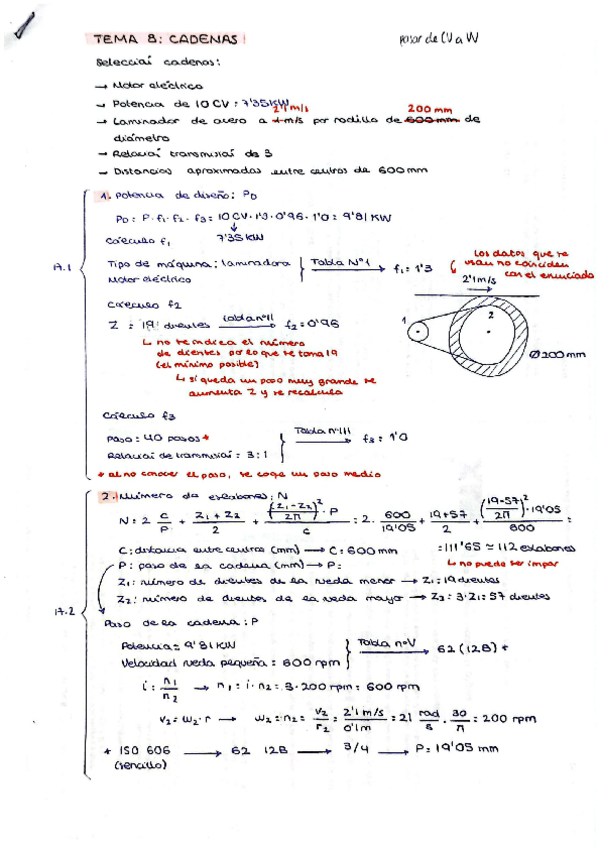 TEMA 8: CADENAS
pasar de CV a W
Selección cadenas:
→ Motor eléctrico
→ Potencia de 10 CV: 7'35KW
2'1 m/s
200 mm
→ Laminador de acero a 1 m/s por rodillo de 600 mm de
diámetro
→ Relación transmisión de 3
→ Distancias aproximadas entre centros de 600mm
1. Potencia de diseño: PD
PD: P·f1·f2·f3 = 10 CV·1'3·0'96·1'0 = 9'81 KW
7'35 KW
Cálculo f1
17.1
Tipo de máquina: laminadora
Motor eléctrico
Tabla Nº1
f1 = 1'3
Los datos que se
usan no coinciden
con el enunciado
2'1m/s
1
2
Ø200mm
Cálculo f2
Z = 19 dientes
tabla nº II
f2 = 0'96
↳ no se indica el número
de dientes por lo que se toma 19
(el mínimo posible)
↳ si queda un paso muy grande se
aumenta Z y se recalcula
Cálculo f3
Paso: 40 pasos *
Relación de transmisión: 3:1
Tabla nº III
f3: 1'0
* al no conocer el paso, se coge un paso medio
2. Número de eslabones: N
N = 2 C/P + (Z1 + Z2)/2 + ((Z1-Z2)/2π)²·P/C = 2· 600/19'05 + (19+57)/2 + ((19-57)/2π)²·19'05/600 =
C: distancia entre centros (mm) → C: 600mm
= 111'65 ≃ 112 eslabones
P: paso de la cadena (mm) → P:
↳ no puede ser impar
Z1: número de dientes de la rueda menor → Z1: 19 dientes
Z2: número de dientes de la rueda mayor → Z2: 3·Z1: 57 dientes
17.2
Paso de la cadena: P
Potencia = 9'81 KW
Velocidad rueda pequeña = 600 rpm
Tabla nº V
62 (12B) *
i: n1/n2 → n1: i·n2 = 3·200 rpm: 600 rpm
V2 = W2·r → W2 = n2 = V2/r2 = 2'1 m/s / 0'1m = 21 rad/s · 30/π = 200 rpm
* ISO 606 → 62 12B → 3/4 → P = 19'05 mm
(sencillo)